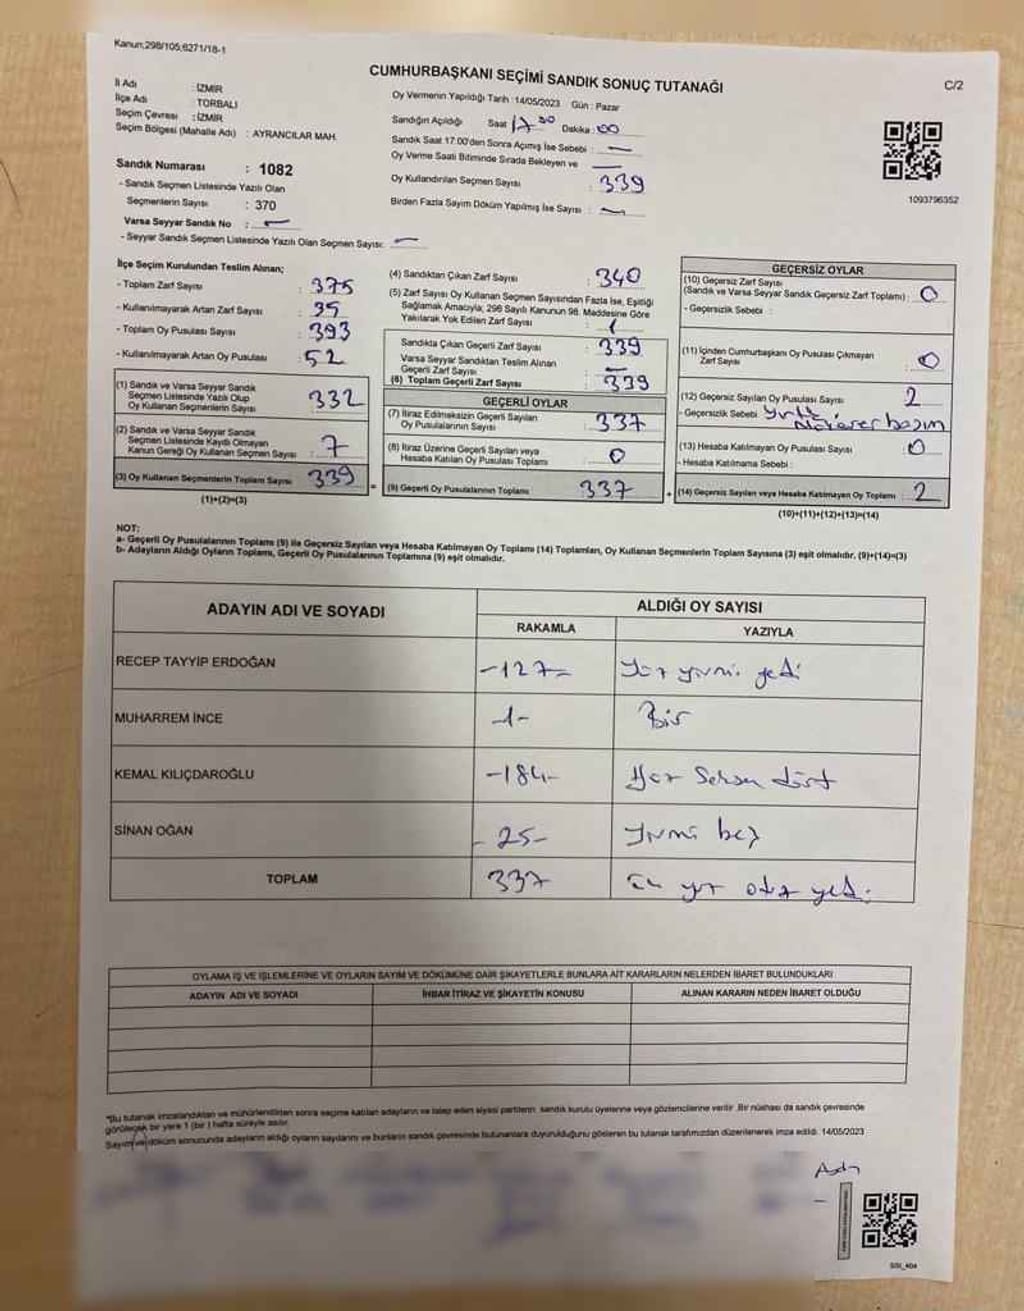 Kanun;298/105;6271/18-1
CUMHURBAŞKANI SEÇİMİ SANDIK SONUÇ TUTANAĞI
C/2
İl Adı : İZMİR
İlçe Adı : TORBALI
Seçim Çevresi : İZMİR
Seçim Bölgesi (Mahalle Adı) : AYRANCILAR MAH.
Sandık Numarası : 1082
- Sandık Seçmen Listesinde Yazılı Olan
Seçmenlerin Sayısı : 370
Varsa Seyyar Sandık No : -
- Seyyar Sandık Seçmen Listesinde Yazılı Olan Seçmen Sayısı: -
Oy Vermenin Yapıldığı Tarih :14/05/2023 Gün : Pazar
Sandığın Açıldığı Saat 17 00 Dakika : 00
Sandık Saat 17:00'den Sonra Açmış İse Sebebi : -
Oy Verme Saati Bitiminde Sırada Bekleyen ve -
Oy Kullandırılan Seçmen Sayısı : 339
Birden Fazla Sayım Döküm Yapılmış İse Sayısı : -
1093796352
İlçe Seçim Kurulundan Teslim Alınan;
- Toplam Zarf Sayısı : 375
- Kullanılmayarak Artan Zarf Sayısı : 35
- Toplam Oy Pusulası Sayısı : 393
- Kullanılmayarak Artan Oy Pusulası : 52
(1) Sandık ve Varsa Seyyar Sandık
Seçmen Listesinde Yazılı Olup
Oy Kullanan Seçmenlerin Sayısı : 332
(2) Sandık ve Varsa Seyyar Sandık
Seçmen Listesinde Kaydı Olmayan
Kanun Gereği Oy Kullanan Seçmen Sayısı : 7
(3) Oy Kullanan Seçmenlerin Toplam Sayısı : 339
(1)+(2)=(3)
(4) Sandıktan Çıkan Zarf Sayısı : 340
(5) Zarf Sayısı Oy Kullanan Seçmen Sayısından Fazla İse, Eşitliği
Sağlamak Amacıyla; 298 Sayılı Kanunun 98. Maddesine Göre
Yakılarak Yok Edilen Zarf Sayısı : 1
Sandıkta Çıkan Geçerli Zarf Sayısı : 339
Varsa Seyyar Sandıktan Teslim Alınan
Geçerli Zarf Sayısı : -
(6) Toplam Geçerli Zarf Sayısı : 339
GEÇERLİ OYLAR
(7) İtiraz Edilmeksizin Geçerli Sayılan
Oy Pusulalarının Sayısı : 337
(8) İtiraz Üzerine Geçerli Sayılan veya
Hesaba Katılan Oy Pusulası Toplamı : 0
(9) Geçerli Oy Pusulalarının Toplamı : 337
GEÇERSİZ OYLAR
(10) Geçersiz Zarf Sayısı
(Sandık ve Varsa Seyyar Sandık Geçersiz Zarf Toplamı) : 0
- Geçersizlik Sebebi :
(11) İçinden Cumhurbaşkanı Oy Pusulası Çıkmayan
Zarf Sayısı : 0
(12) Geçersiz Sayılan Oy Pusulası Sayısı : 2
- Geçersizlik Sebebi :
(13) Hesaba Katılmayan Oy Pusulası Sayısı : 0
- Hesaba Katılmama Sebebi :
(14) Geçersiz Sayılan veya Hesaba Katılmayan Oy Toplamı : 2
(10)+(11)+(12)+(13)=(14)
NOT:
a- Geçerli Oy Pusulalarının Toplamı (9) ile Geçersiz Sayılan veya Hesaba Katılmayan Oy Toplamı (14) Toplamları, Oy Kullanan Seçmenlerin Toplam Sayısına (3) eşit olmalıdır. (9)+(14)=(3)
b- Adayların Aldığı Oyların Toplamı, Geçerli Oy Pusulalarının Toplamına (9) eşit olmalıdır.
ADAYIN ADI VE SOYADI ALDIĞI OY SAYISI
RAKAMLA YAZIYLA
RECEP TAYYİP ERDOĞAN -127- Yüz yirmi yedi
MUHARREM İNCE -1- Bir
KEMAL KILIÇDAROĞLU -184- Yüz Seksen dört
SİNAN OĞAN -25- Yirmi beş
TOPLAM 337 Üç yüz otuz yedi
OYLAMA İŞ VE İŞLEMLERİNE VE OYLARIN SAYIM VE DÖKÜMÜNE DAİR ŞİKAYETLERLE BUNLARA AİT KARARLARIN NELERDEN İBARET BULUNDUKLARI
ADAYIN ADI VE SOYADI İHBAR İTİRAZ VE ŞİKAYETİN KONUSU ALINAN KARARIN NEDEN İBARET OLDUĞU
*Bu tutanak imzalandıktan ve mühürlendikten sonra seçime katılan adayların ve talep eden siyasi partilerin sandık kurulu üyelerine veya gözlemcilerine verilir. Bir nüshası da sandık çevresinde
görülecek bir yere 1 (bir) hafta süreyle asılır.
Sayım ve döküm sonucunda adayların aldığı oyların sayılarını ve bunların sandık çevresinde bulunanlara duyurulduğunu gösteren bu tutanak tarafımızdan düzenlenerek imza edildi. 14/05/2023